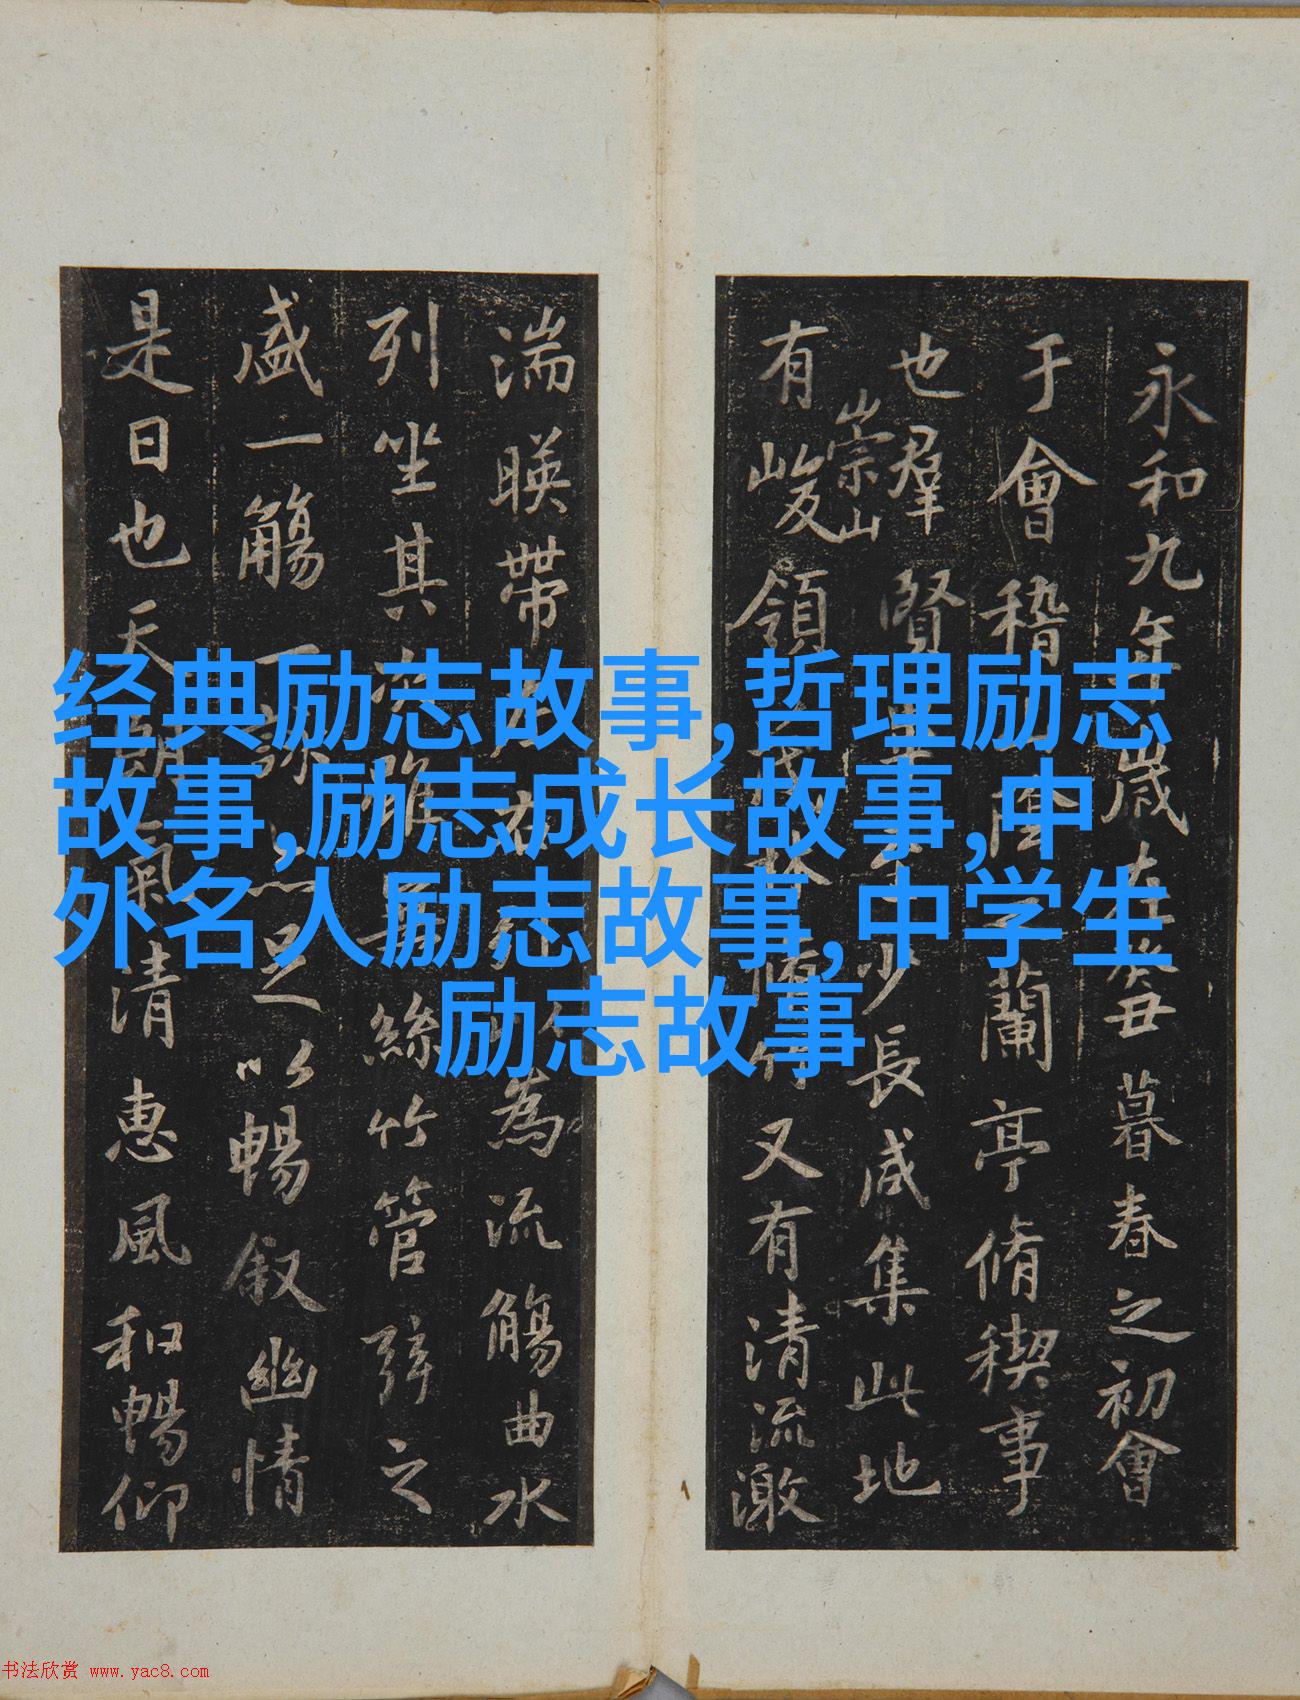 永和九年歲在癸丑暮春之初會
于會稽山陰之蘭亭脩稧事
也羣賢畢至少長咸集此地
有崇山峻領茂林脩竹又有清流激
湍暎帶左右引以為流觴曲水
列坐其次雖無絲竹管弦之
盛一觴一詠亦足以暢叙幽情
是日也天朗氣清惠風和暢仰
经典励志故事,哲理励志
故事,励志成长故事,中
外名人励志故事,中学生
励志故事
书法欣赏 www.yac8.com